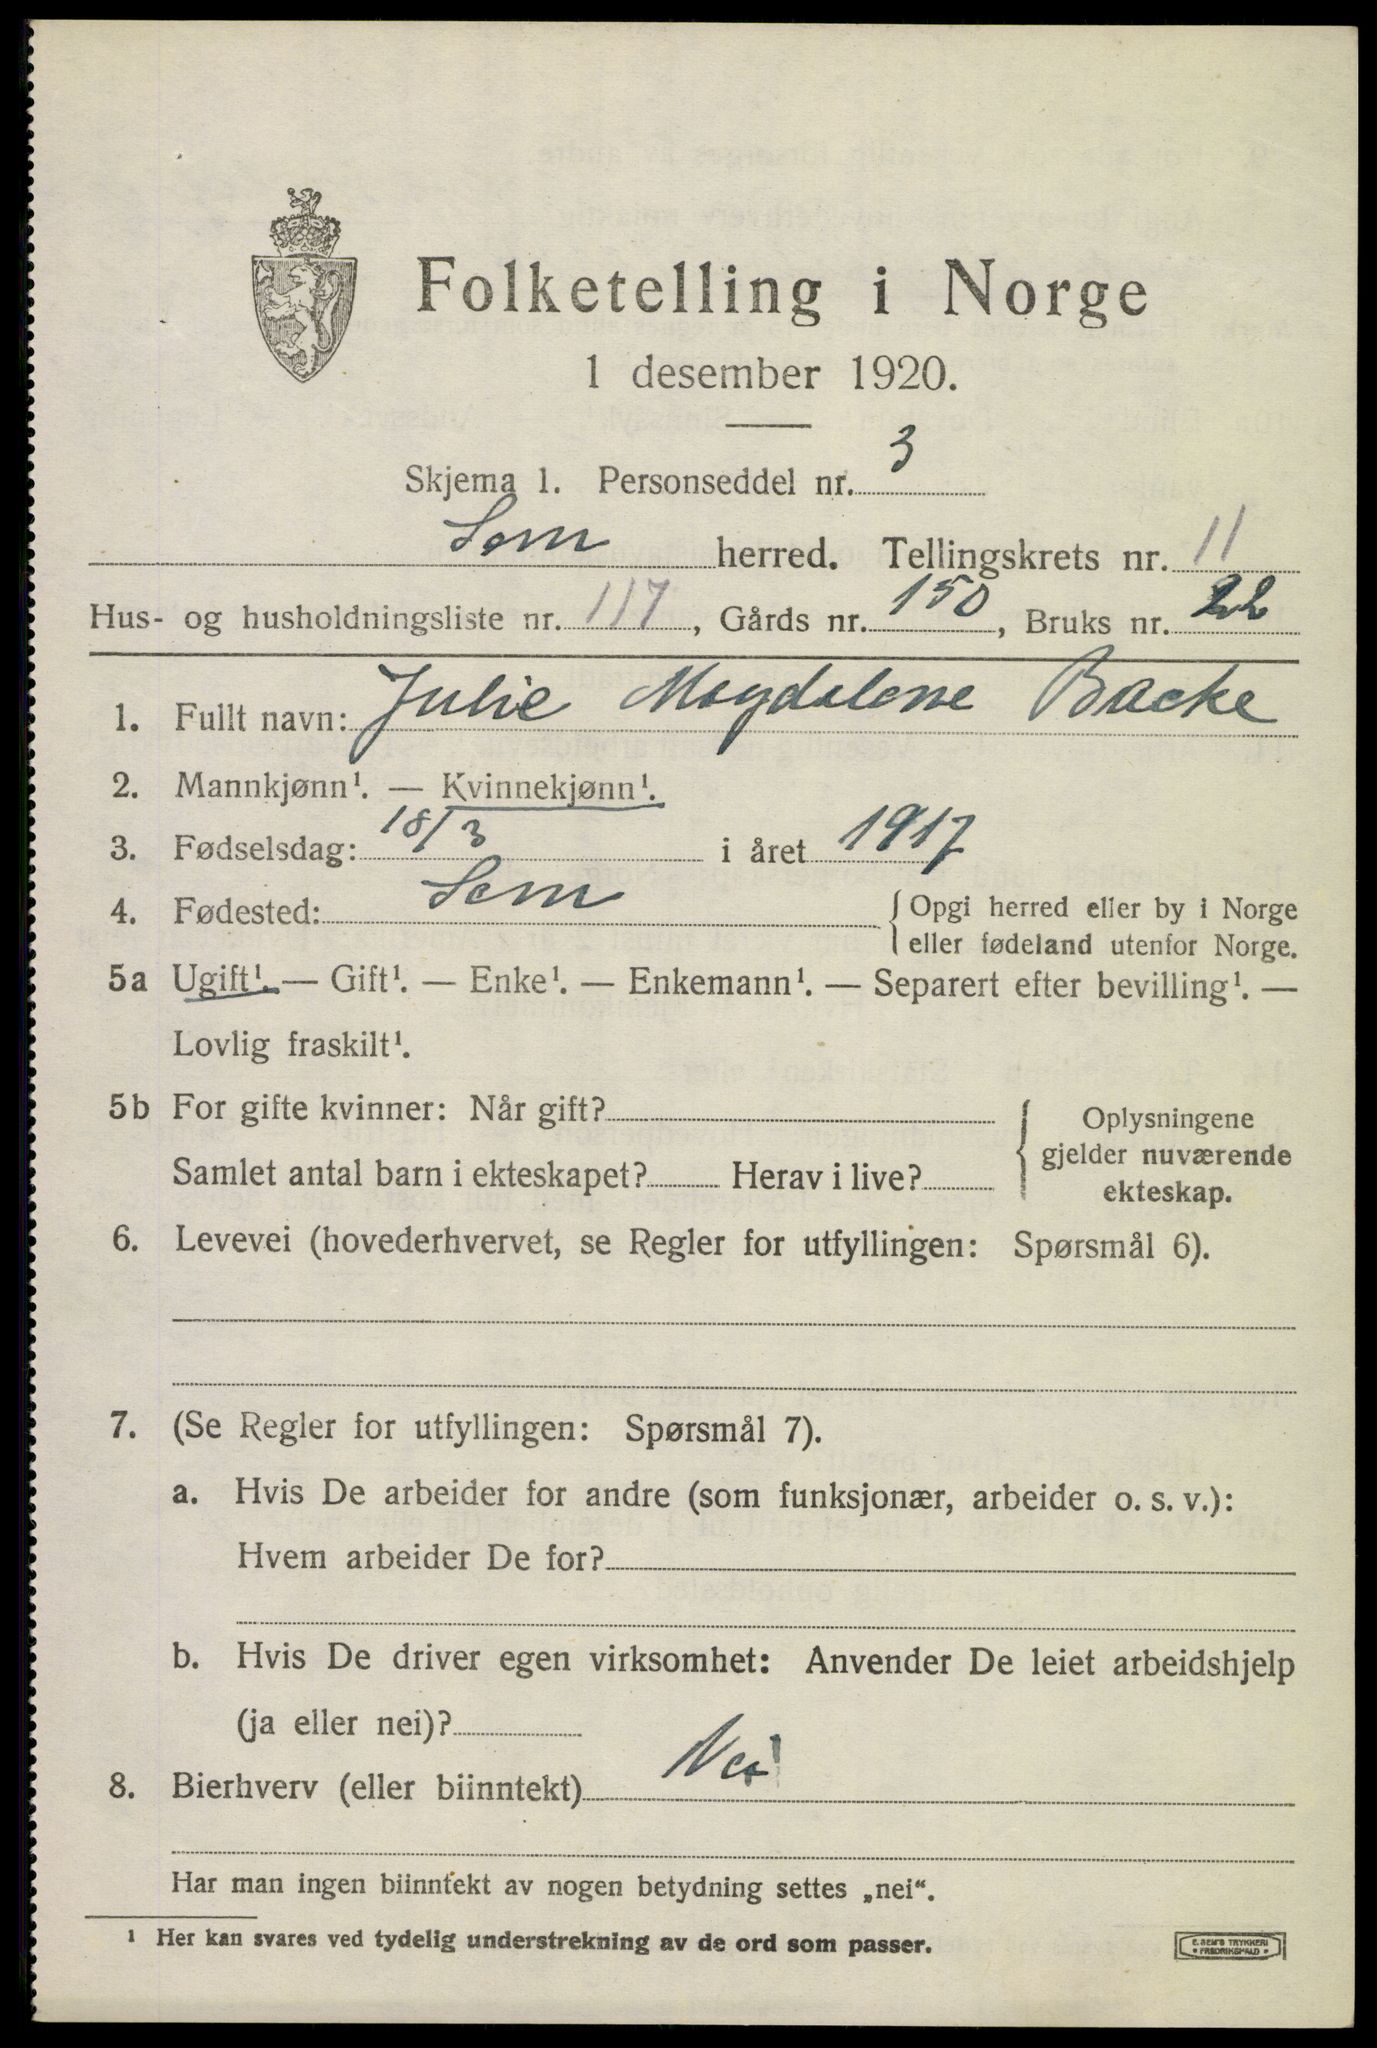 Folketelling i Norge
1 desember 1920.
Skjema 1. Personseddel nr. 3
Sem herred. Tellingskrets nr. 11
Hus- og husholdningsliste nr. 117, Gårds nr. 150, Bruks nr. 22
1. Fullt navn: Julie Magdalene Backe
2. Mannkjønn¹. — Kvinnekjønn¹.
3. Fødselsdag: 18/3 i året 1917
4. Fødested: Sem { Opgi herred eller by i Norge
eller fødeland utenfor Norge.
5a Ugift¹. — Gift¹. — Enke¹. — Enkemann¹. — Separert efter bevilling¹. —
Lovlig fraskilt¹.
5b For gifte kvinner: Når gift?
Samlet antal barn i ekteskapet? Herav i live?
Oplysningene
gjelder nuværende
ekteskap.
6. Levevei (hovederhvervet, se Regler for utfyllingen: Spørsmål 6).
7. (Se Regler for utfyllingen: Spørsmål 7).
a. Hvis De arbeider for andre (som funksjonær, arbeider o. s. v.):
Hvem arbeider De for?
b. Hvis De driver egen virksomhet: Anvender De leiet arbeidshjelp
(ja eller nei)?
8. Bierhverv (eller biinntekt) Nei
Har man ingen biinntekt av nogen betydning settes „nei“.
¹ Her kan svares ved tydelig understrekning av de ord som passer.
E. SEM'S TRYKKERI
• FREDRIKSHALD •